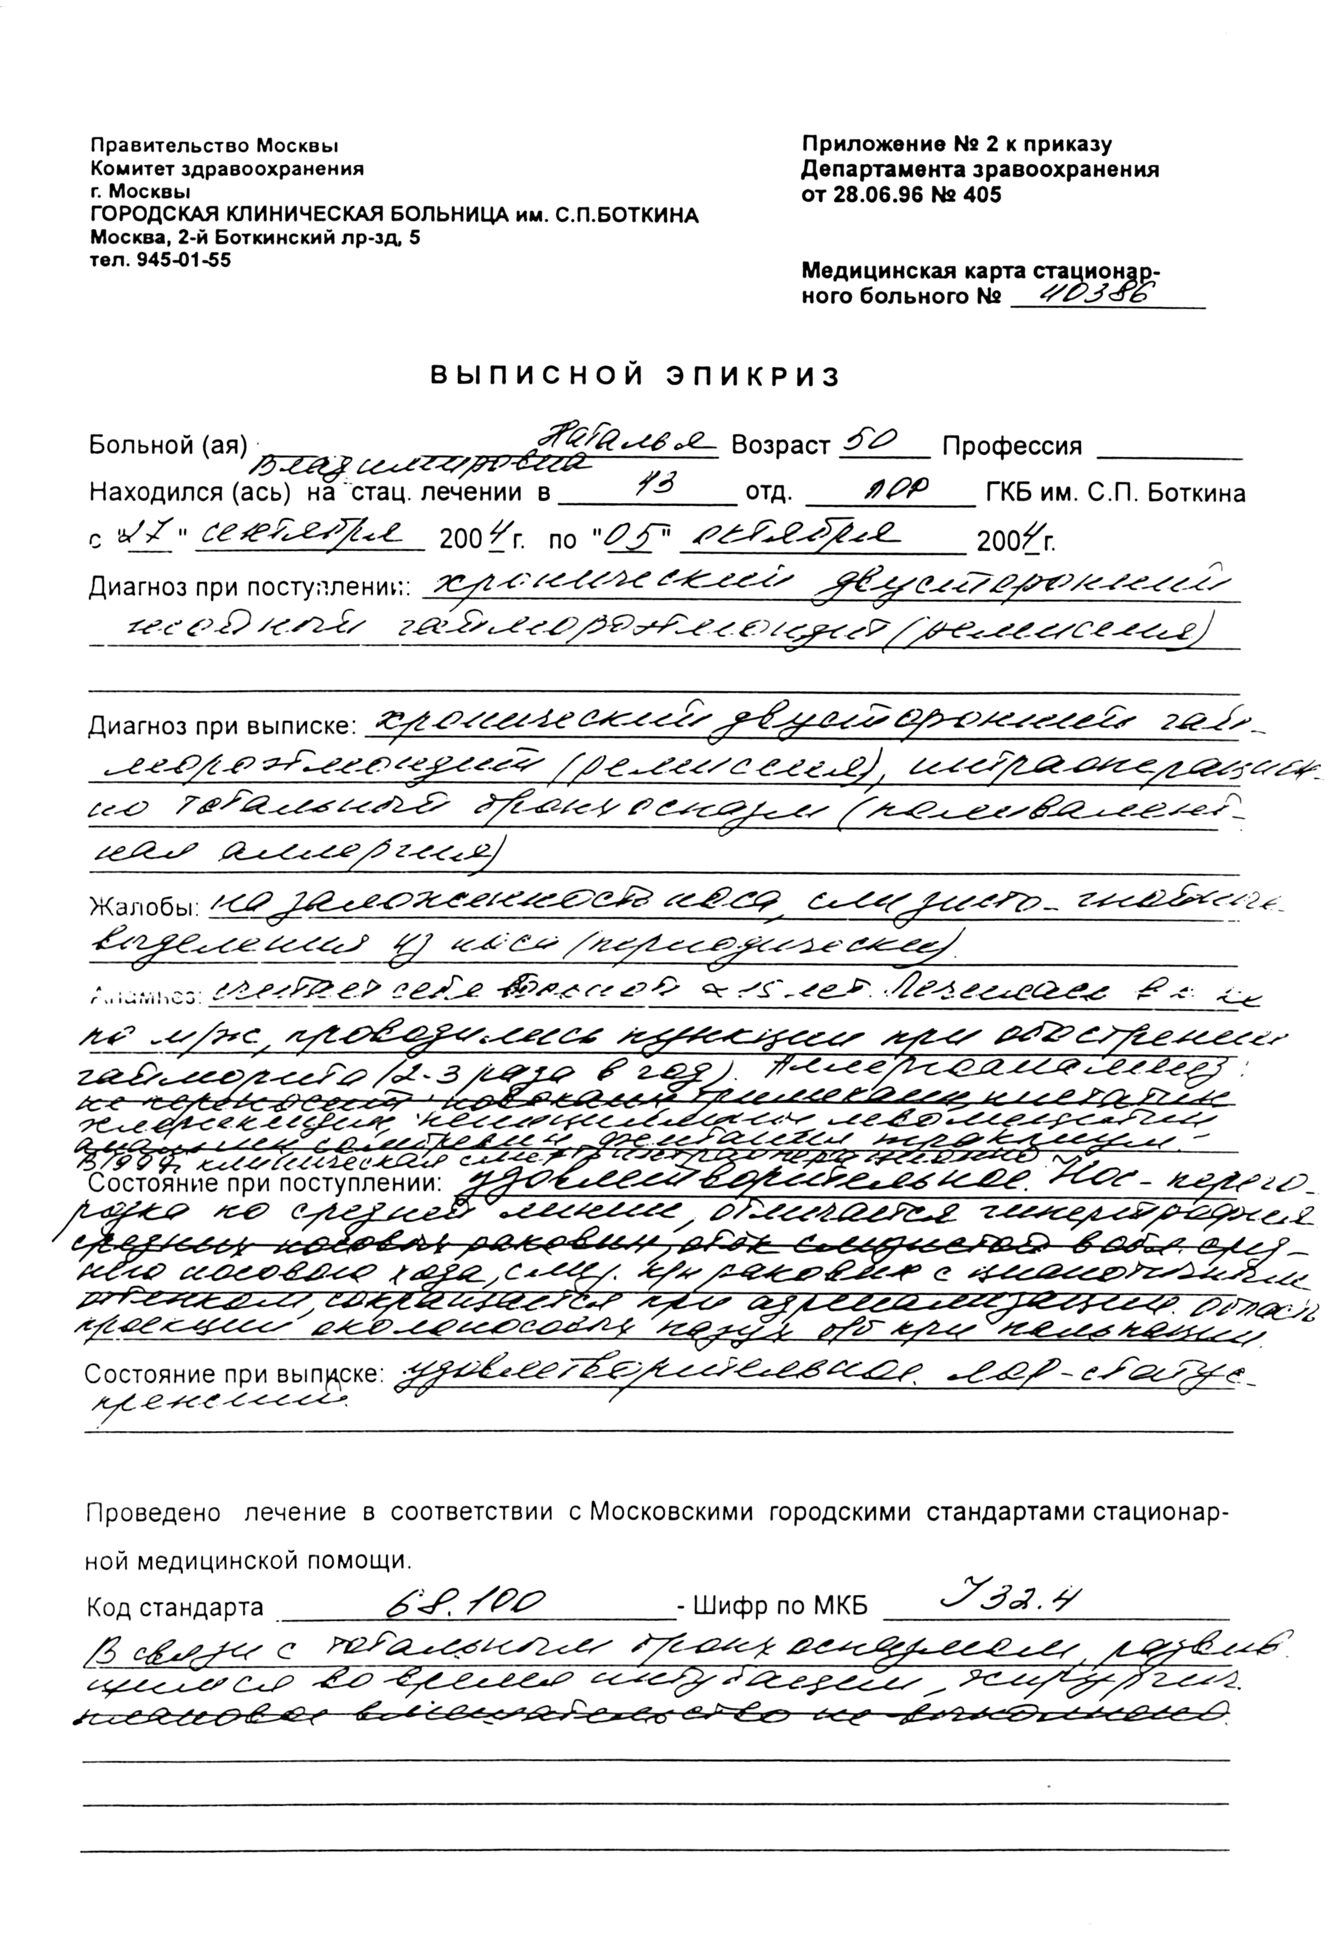 Правительство Москвы
Комитет здравоохранения
г. Москвы
ГОРОДСКАЯ КЛИНИЧЕСКАЯ БОЛЬНИЦА им. С.П.БОТКИНА
Москва, 2-й Боткинский пр-зд, 5
тел. 945-01-55
Приложение № 2 к приказу
Департамента зравоохранения
от 28.06.96 № 405
Медицинская карта стационар-
ного больного № 40386
ВЫПИСНОЙ ЭПИКРИЗ
Больной (ая) Наталья Возраст 50 Профессия
Владимировна
Находился (ась) на стац. лечении в 43 отд. ЛОР ГКБ им. С.П. Боткина
с "27" сентября 2004 г. по "05" октября 2004 г.
Диагноз при поступлении: хронический двусторонний
гнойный гаймороэтмоидит (ремиссия)
Диагноз при выписке: хронический двусторонний гай-
мороэтмоидит (ремиссия), интраоперацион-
но тотальный бронхоспазм (поливалент-
ная аллергия)
Жалобы: на заложенность носа, слизисто-гнойные
выделения из носа (периодически).
Анамнез: считает себя больной ~ 15 лет. Лечилась
по м/ж, проводились пункции при обострении
гайморита (2-3 раза в год). Аллергоанамнез:
не переносит новокаин, тримекаин, нистатин
пенициллин, левомицетин
анальгин
В 1999г. клиническая смерть интраоперационно
Состояние при поступлении: удовлетворительное. Нос - перего-
родка по средней линии, отмечается гипертрофия
средних носовых раковин, отек слизистой в обл. сред-
него носового хода, слиз. раковин с цианотичным
оттенком, сокращается при адренализации. Область
проекции околоносовых пазух б/б при пальпации.
Состояние при выписке: удовлетворительное. лор-статус -
прежний.
Проведено лечение в соответствии с Московскими городскими стандартами стационар-
ной медицинской помощи.
Код стандарта 68.100 - Шифр по МКБ J32.4
В связи с тотальным бронхоспазмом, развив
шимся во время интубации, хирургич.
плановое вмешательство не выполнено.